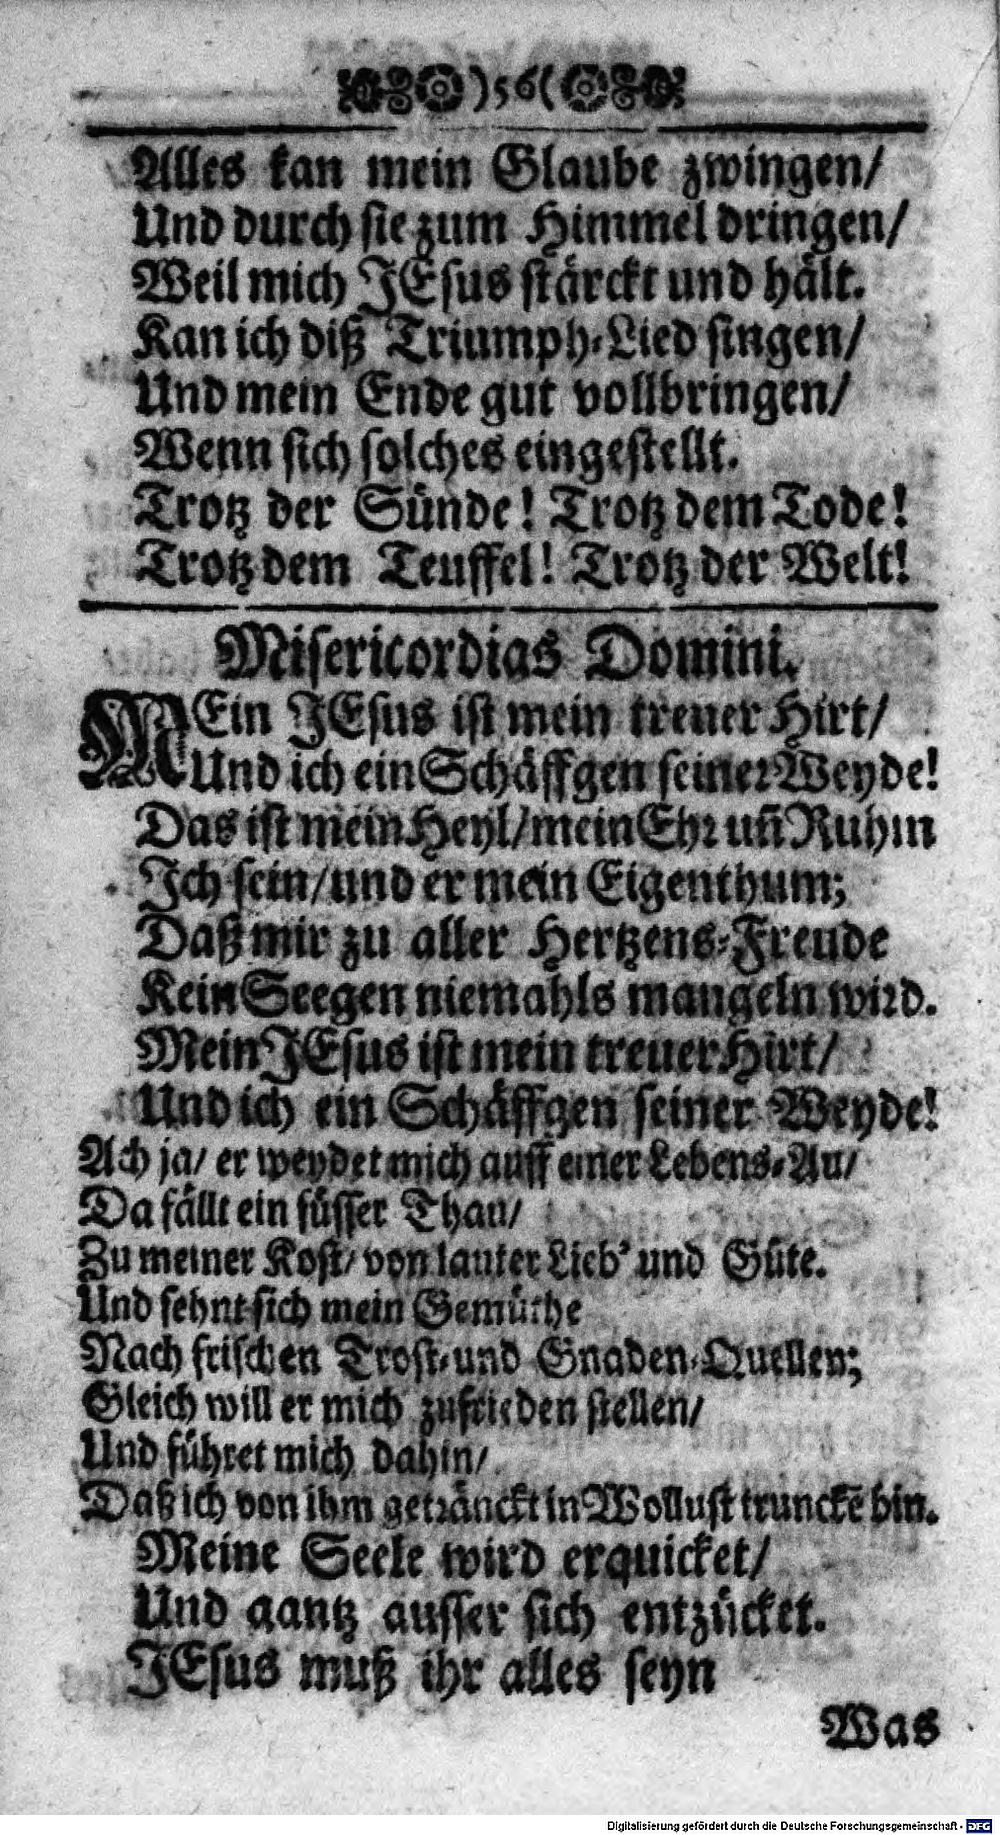 )56(
Alles kan mein Glaube zwingen/
Und durch sie zum Himmel dringen/
Weil mich JEsus stärckt und hält.
Kan ich diß Triumph-Lied singen/
Und mein Ende gut vollbringen/
Wenn sich solches eingestellt.
Trotz der Sünde! Trotz dem Tode!
Trotz dem Teuffel! Trotz der Welt!
Misericordias Domini.
MEin JEsus ist mein treuer Hirt/
Und ich ein Schäffgen seiner Weyde!
Das ist mein Heyl/mein Ehr un̄ Ruhm
Ich sein/und er mein Eigenthum;
Daß mir zu aller Hertzens-Freude
Kein Seegen niemahls mangeln wird.
Mein JEsus ist mein treuer Hirt/
Und ich ein Schäffgen seiner Weyde!
Ach ja/ er weydet mich auff einer Lebens-Au/
Da fällt ein süsser Thau/
Zu meiner Kost/ von lauter Lieb' und Güte.
Und sehnt sich mein Gemüthe
Nach frischen Trost- und Gnaden-Quellen;
Gleich will er mich zufrieden stellen/
Und führet mich dahin/
Daß ich von ihm getränckt in Wollust trunckē bin.
Meine Seele wird erquicket/
Und gantz ausser sich entzücket.
JEsus muß ihr alles seyn
Was
Digitalisierung gefördert durch die Deutsche Forschungsgemeinschaft - DFG